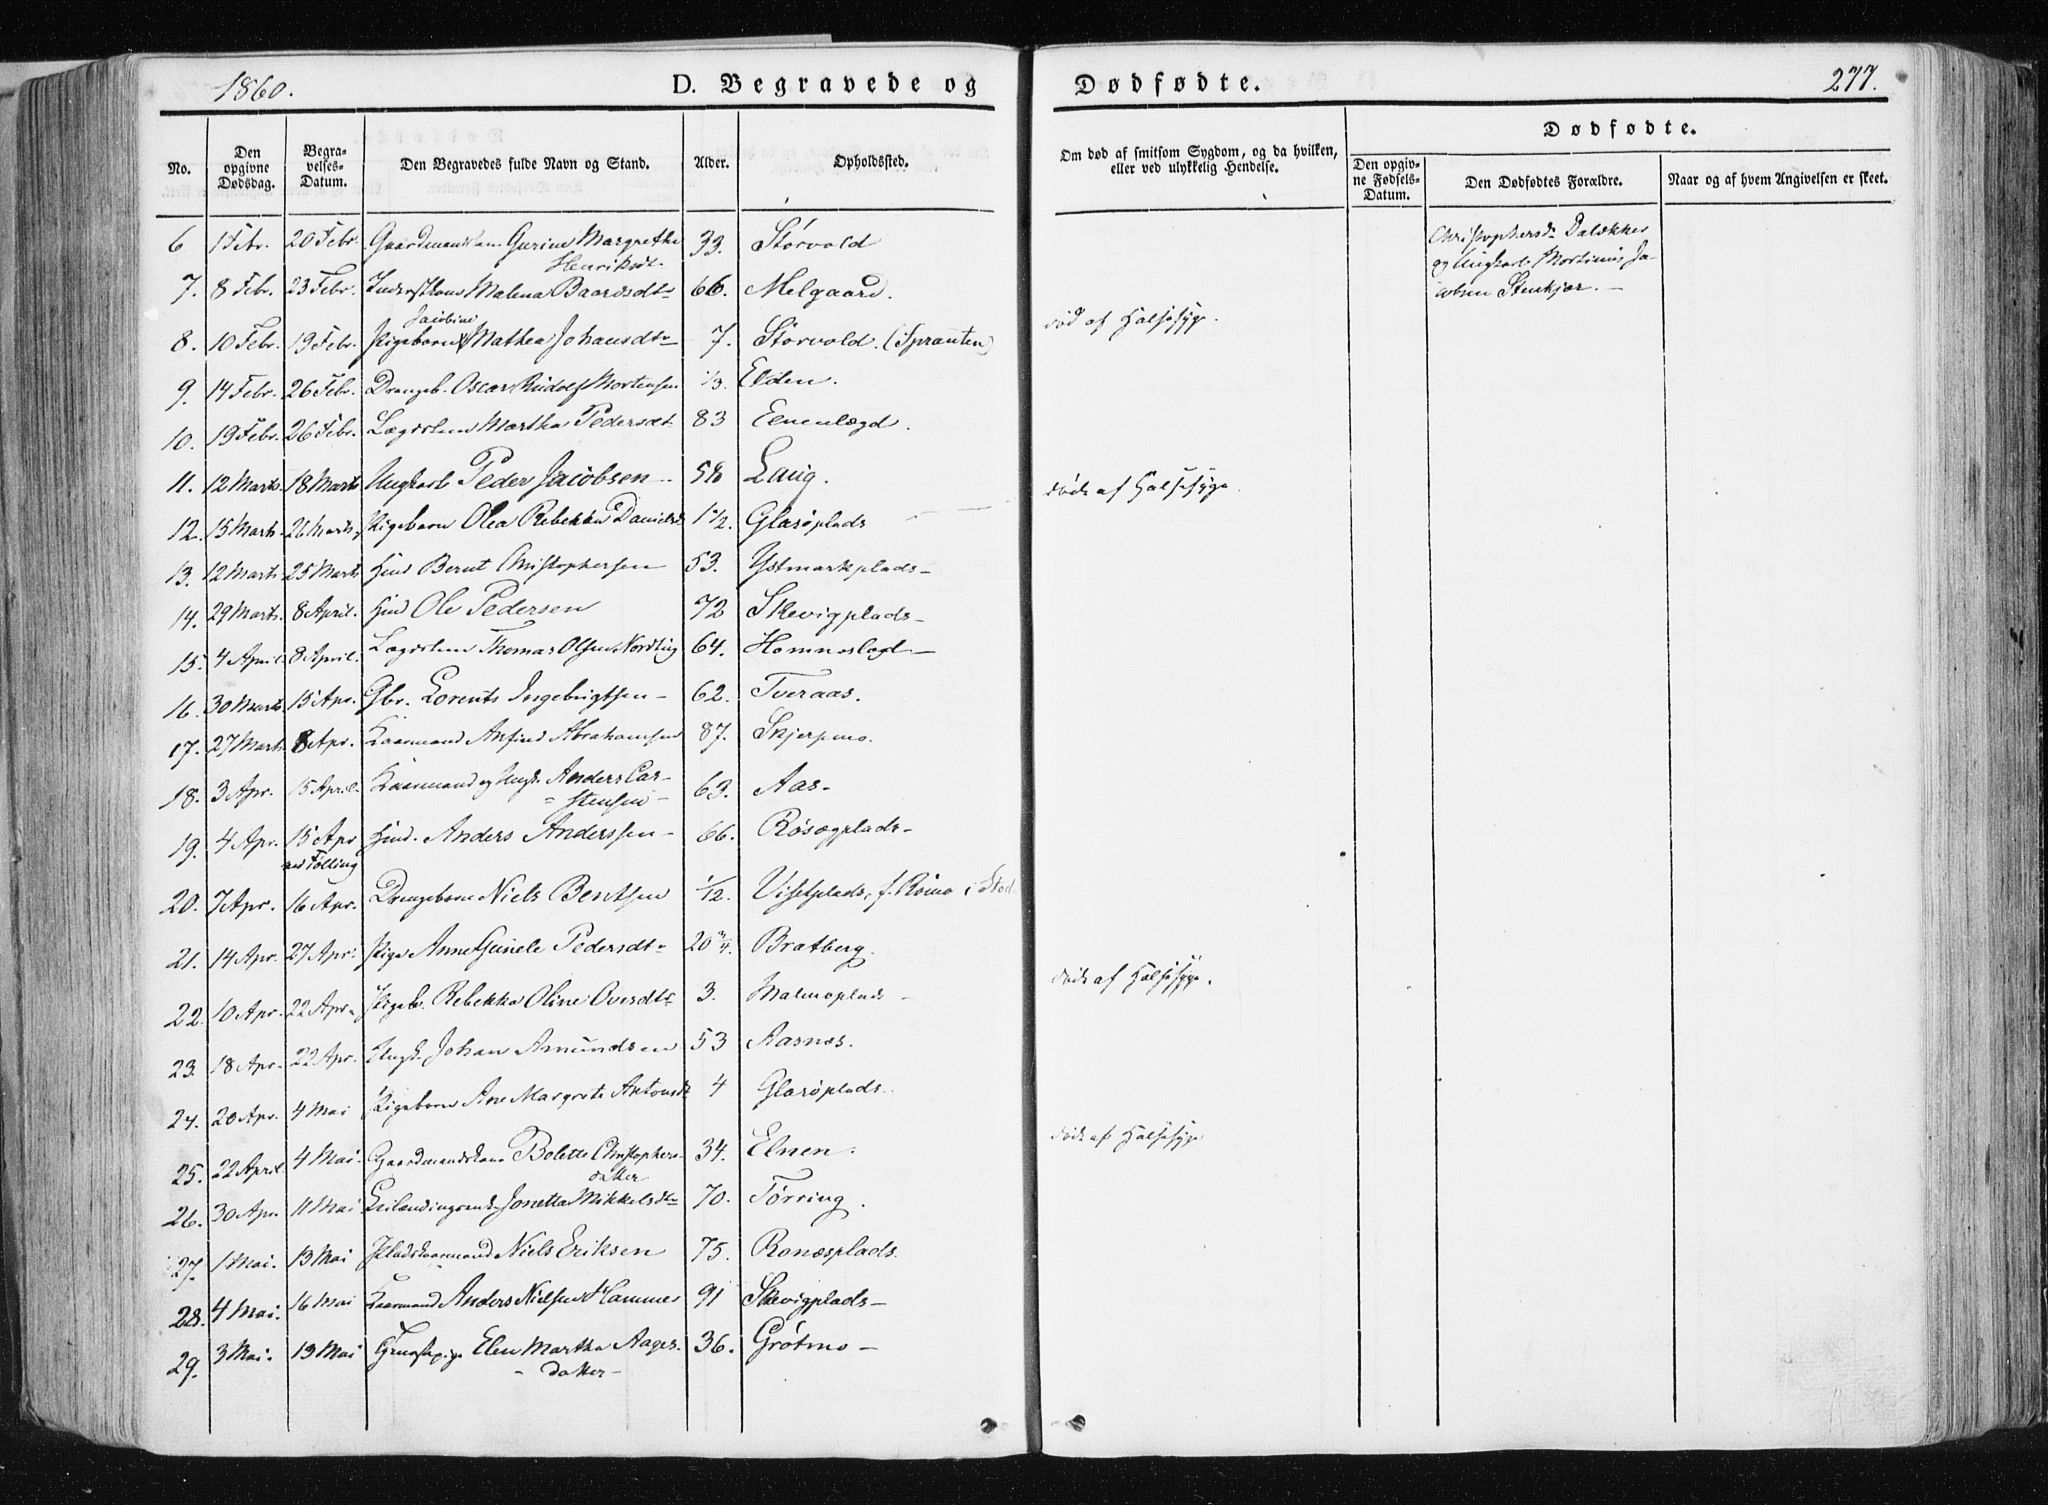 1860.
D. Begravede og
Dødfødte.
277.
No.
Den opgivne Dødsdag.
Begra-velses-Datum.
Den Begravedes fulde Navn og Stand.
Alder.
Opholdssted.
Om død af smitsom Sygdom, og da hvilken, eller ved ulykkelig Hendelse.
Dødfødte.
Den opgiv-ne Fødsels-Datum.
Den Dødfødtes Forældre.
Naar og af hvem Angivelsen er skeet.
6 1 Febr. 20 Febr. Gaardmandskone Gurine Margrethe 33. Størvold
Henriksdt.
7. 8 Febr. 23 Febr. Malena Baardsdtr 66. Melgaard.
Jacobine
8. 10 Febr. 19 Febr. Pigebarn Mathea Johansdtr 7. Størvold. (Sprauten) død af Halssyge.
9. 14 Febr. 26 Febr. Drengeb. Oscar Rudolf Mortensen 1/3. Elden.
10. 19 Febr. 26 Febr. Lægdslem Martha Pedersdt 83 Elnenlægd.
11. 12 Marts 18 Marts Ungkarl Peder Jacobsen 58 Laug.
12. 15 Marts 26 Marts Pigebarn Olea Rebekka Danielsd 1 1/2. Glasøplads døde af Halssyge.
13. 12 Marts 25 Marts Huusmd Bernt Christophersen 53. Ystmarkplads
14. 29 Marts. 8 April. Huusmd Ole Pedersen 72 Skevigplads
15. 4 April 8 April. Lægdslem Thomas Olsen Nordling 64. Homneslægd
16. 30 Marts. 15 Apr. Gbr. Lorents Ingebrigtsen 62. Tveraas.
17. 27 Marts 8 Apr. Kaarmand Anfind Abrahamsen 87. Skjerpmo.
18. 3 Apr. 15 April. Kaarmand og Ungk. Anders Car-
stensen 63. Aas
19. 4 Apr. 15 Apr Anders Anderssen 66. Røsegplads
ved Følling
20. 7 Apr. 16 Apr. Drengebarn Niels Bentsen 1/12. Visetplads, f. Rømo i Stod
21. 14 Apr. 27 Apr. Pige Anne Gunele Pedersdt 20 3/4. Bratberg.
22. 10 Apr. 22 Apr. Pigeb. Rebekka Oline Oversdtr 3. Malmoplads døde af Halssyge.
23. 18 Apr. 22 Apr. Ungk. Johan Amundsen 53 Aasnes.
24. 20 Apr. 4 Mai Pigebarn Ane Margrete Antonsdtr 4 Glasøplads.
25. 22 April 4 Mai. Gaardmandskone Bolette Christophers- 34. Elnen. døde af Halssyge
datter
26. 30 Apr. 11 Mai Jonetta Mikkelsdtr 70. Tørring.
27. 1 Mai. 13 Mai Pladskaarmand Niels Eriksen 75. Ronæsplads.
28. 4 Mai. 16 Mai Kaarmand Anders Nielsen Hammer 91 Skevigplads
29. 3 Mai. 13 Mai Elen Martha Aages- 36. Grøtmo
datter
Christophersdr Dalækker
og Ungkarl Mortinus Ja-
cobsen Stenkjær.